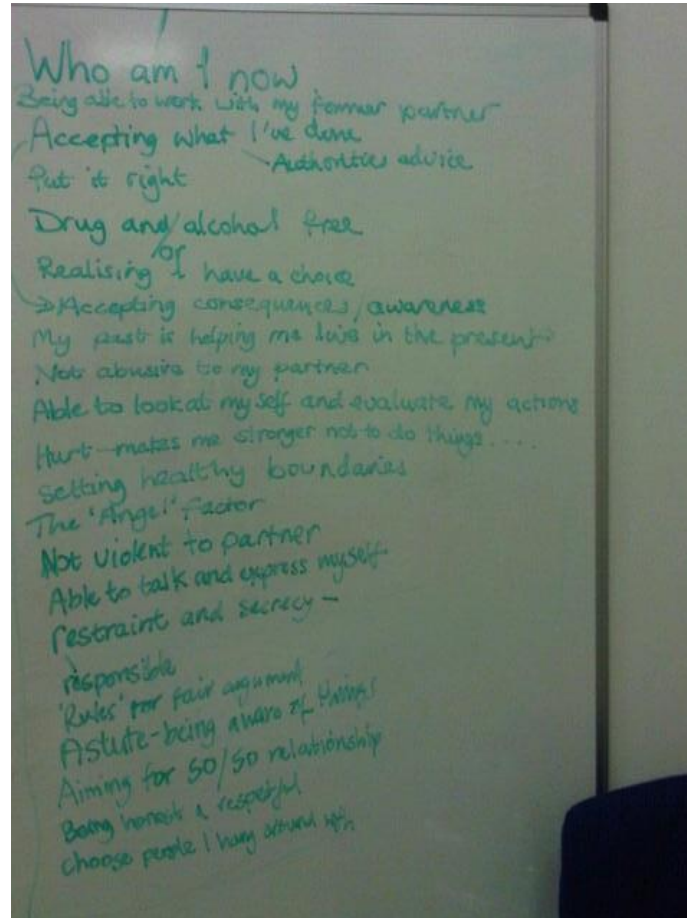 Who am I now
Being able to work with my former partner
Accepting what I've done
Authorities advice
Put it right
Drug and/or alcohol free
Realising I have a choice
Accepting consequences/awareness
My past is helping me live in the present
Not abusive to my partner
Able to look at myself and evaluate my actions
Hurt-makes me stronger not to do things....
setting healthy boundaries
The 'Angel' Factor
Not violent to partner
Able to talk and express myself
restraint and secrecy -
responsible
'Rules' for fair argument
Astute-being aware of things
Aiming for 50/50 relationship
Being honest & respectful
choose people I hang around with